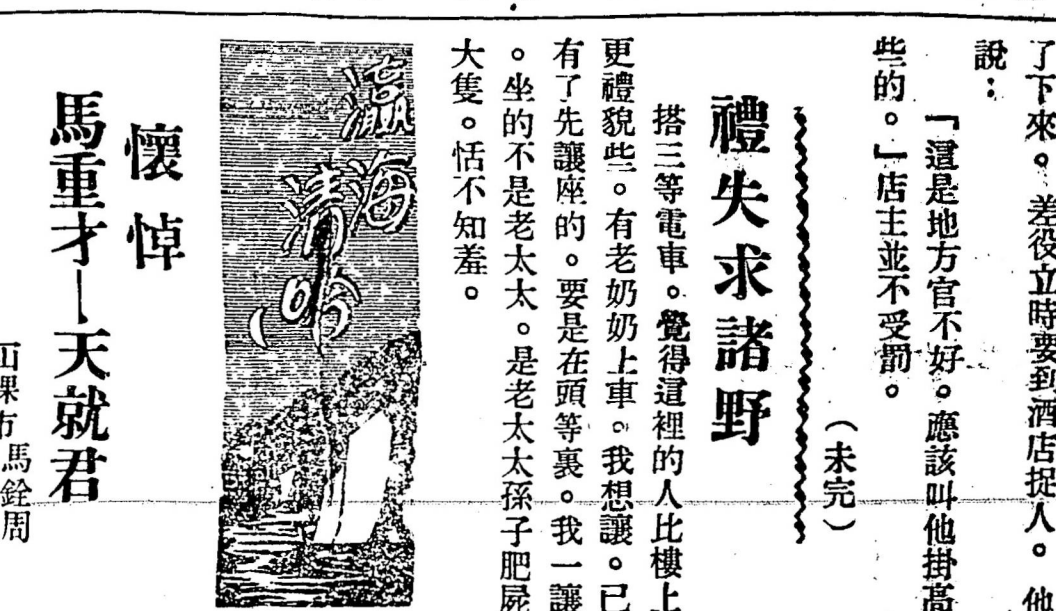 了下來。差役立時要到酒店捉人。他
說：
「這是地方官不好。應該叫他掛高
些的。」店主並不受罰。
（未完）
禮失求諸野
搭三等電車。覺得這裡的人比樓上
更禮貌些。有老奶奶上車。我想讓。已
有了先讓座的。要是在頭等裏。我一讓
。坐的不是老太太。是老太太孫子肥屍
大隻。恬不知羞。
瀛海
清
懷悼
馬重才—天就君
馬銓周